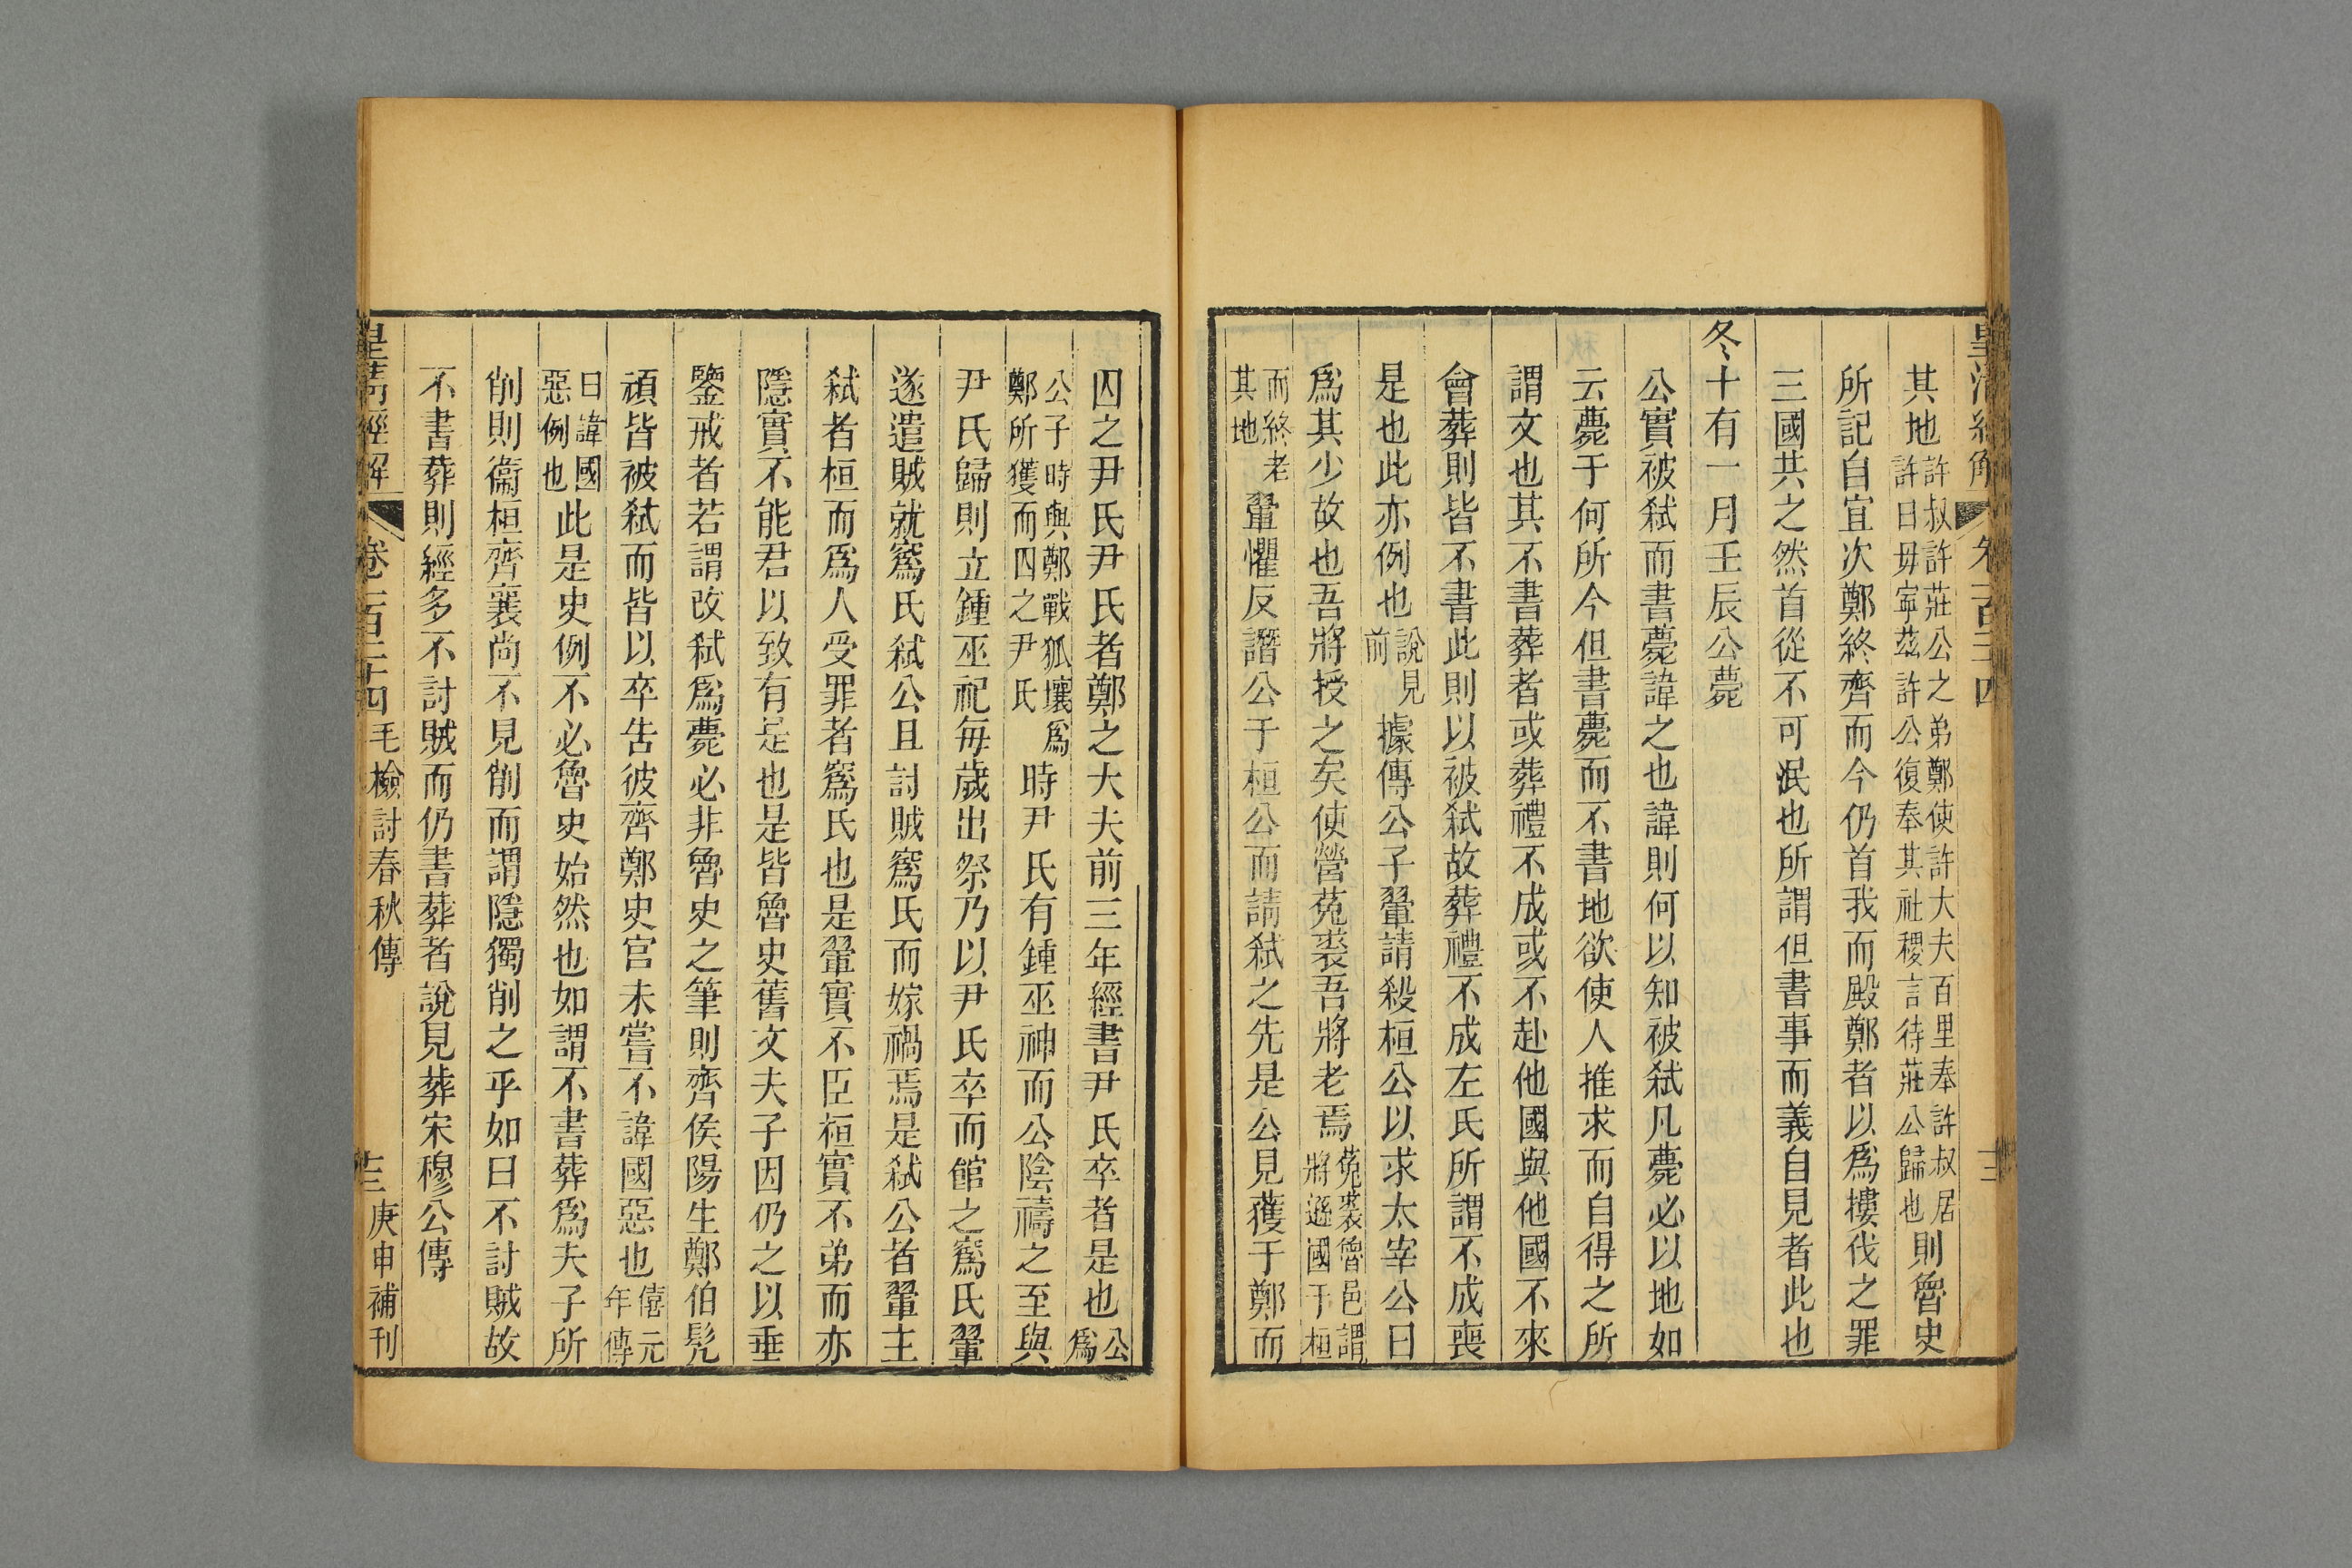 皇清經解 卷一百二十四 十三
其地許叔許莊公之弟鄭使許大夫百里奉許叔居許曰毋寧茲許公復奉其社稷言待莊公歸也則魯史
所記自宜次鄭終齊而今仍首我而殿鄭者以爲摟伐之罪
三國共之然首從不可泯也所謂但書事而義自見者此也
冬十有一月壬辰公薨
公實被弑而書薨諱之也諱則何以知被弑凡薨必以地如
云薨于何所今但書薨而不書地欲使人推求而自得之所
謂文也其不書葬者或葬禮不成或不赴他國與他國不來
會葬則皆不書此則以被弑故葬禮不成左氏所謂不成喪
是也此亦例也說見前據傳公子翬請殺桓公以求太宰公曰
爲其少故也吾將授之矣使營菟裘吾將老焉菟裘魯邑謂將遜國于桓
而終老其地翬懼反譖公于桓公而請弑之先是公見獲于鄭而
囚之尹氏尹氏者鄭之大夫前三年經書尹氏卒者是也公爲
公子時與鄭戰狐壤爲鄭所獲而囚之尹氏時尹氏有鍾巫神而公陰禱之至與
尹氏歸則立鍾巫祀每歲出祭乃以尹氏卒而館之寪氏翬
遂遣賊就寪氏弑公且討賊寪氏而嫁禍焉是弑公者翬主
弑者桓而爲人受罪者寪氏也是翬實不臣桓實不弟而亦
隱實不能君以致有是也是皆魯史舊文夫子因仍之以垂
鑒戒者若謂改弑爲薨必非魯史之筆則齊侯陽生鄭伯髡
頑皆被弑而皆以卒告彼齊鄭史官未嘗不諱國惡也僖元年傳
曰諱國惡例也此是史例不必魯史始然也如謂不書葬爲夫子所
削則衞桓齊襄尚不見削而謂隱獨削之乎如曰不討賊故
不書葬則經多不討賊而仍書葬者說見葬宋穆公傳
皇清經解 卷一百二十四 毛檢討春秋傳 十三 庚申補刊